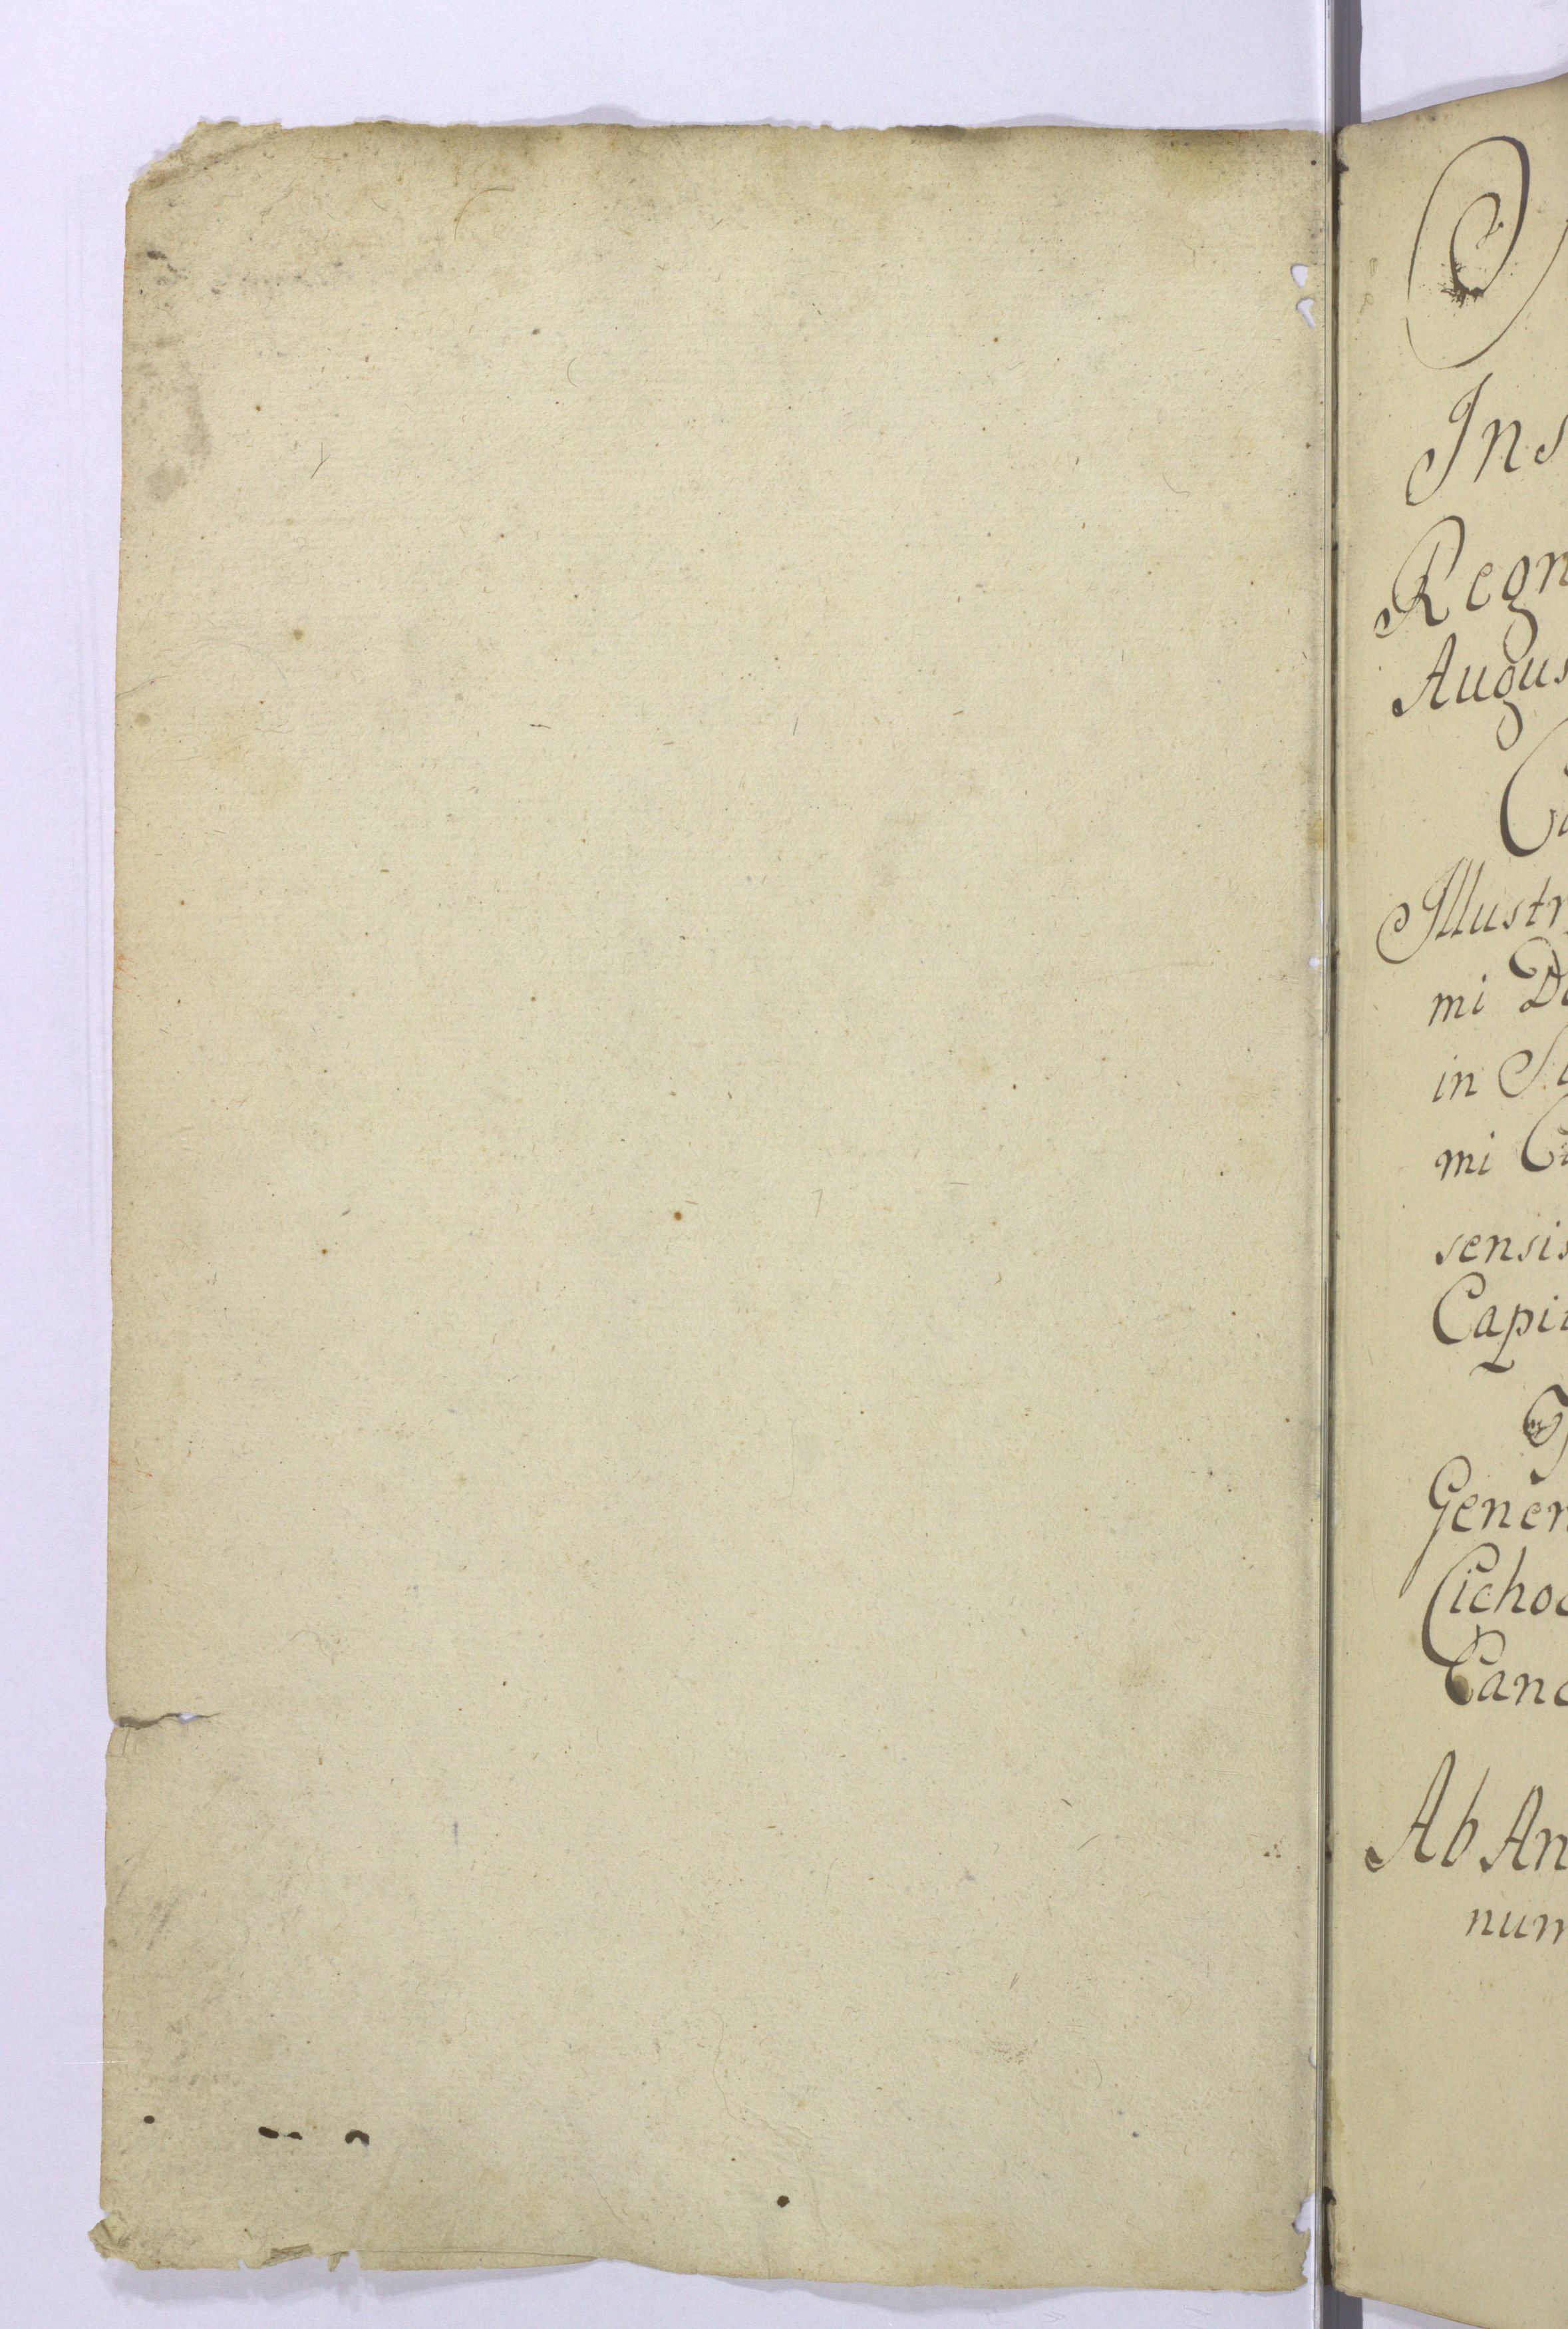 Ins
Regn
Augus
Illustr
mi D
in S
mi C
sensis
Capi
Gener
Cichoc
Canc
Ab An
num